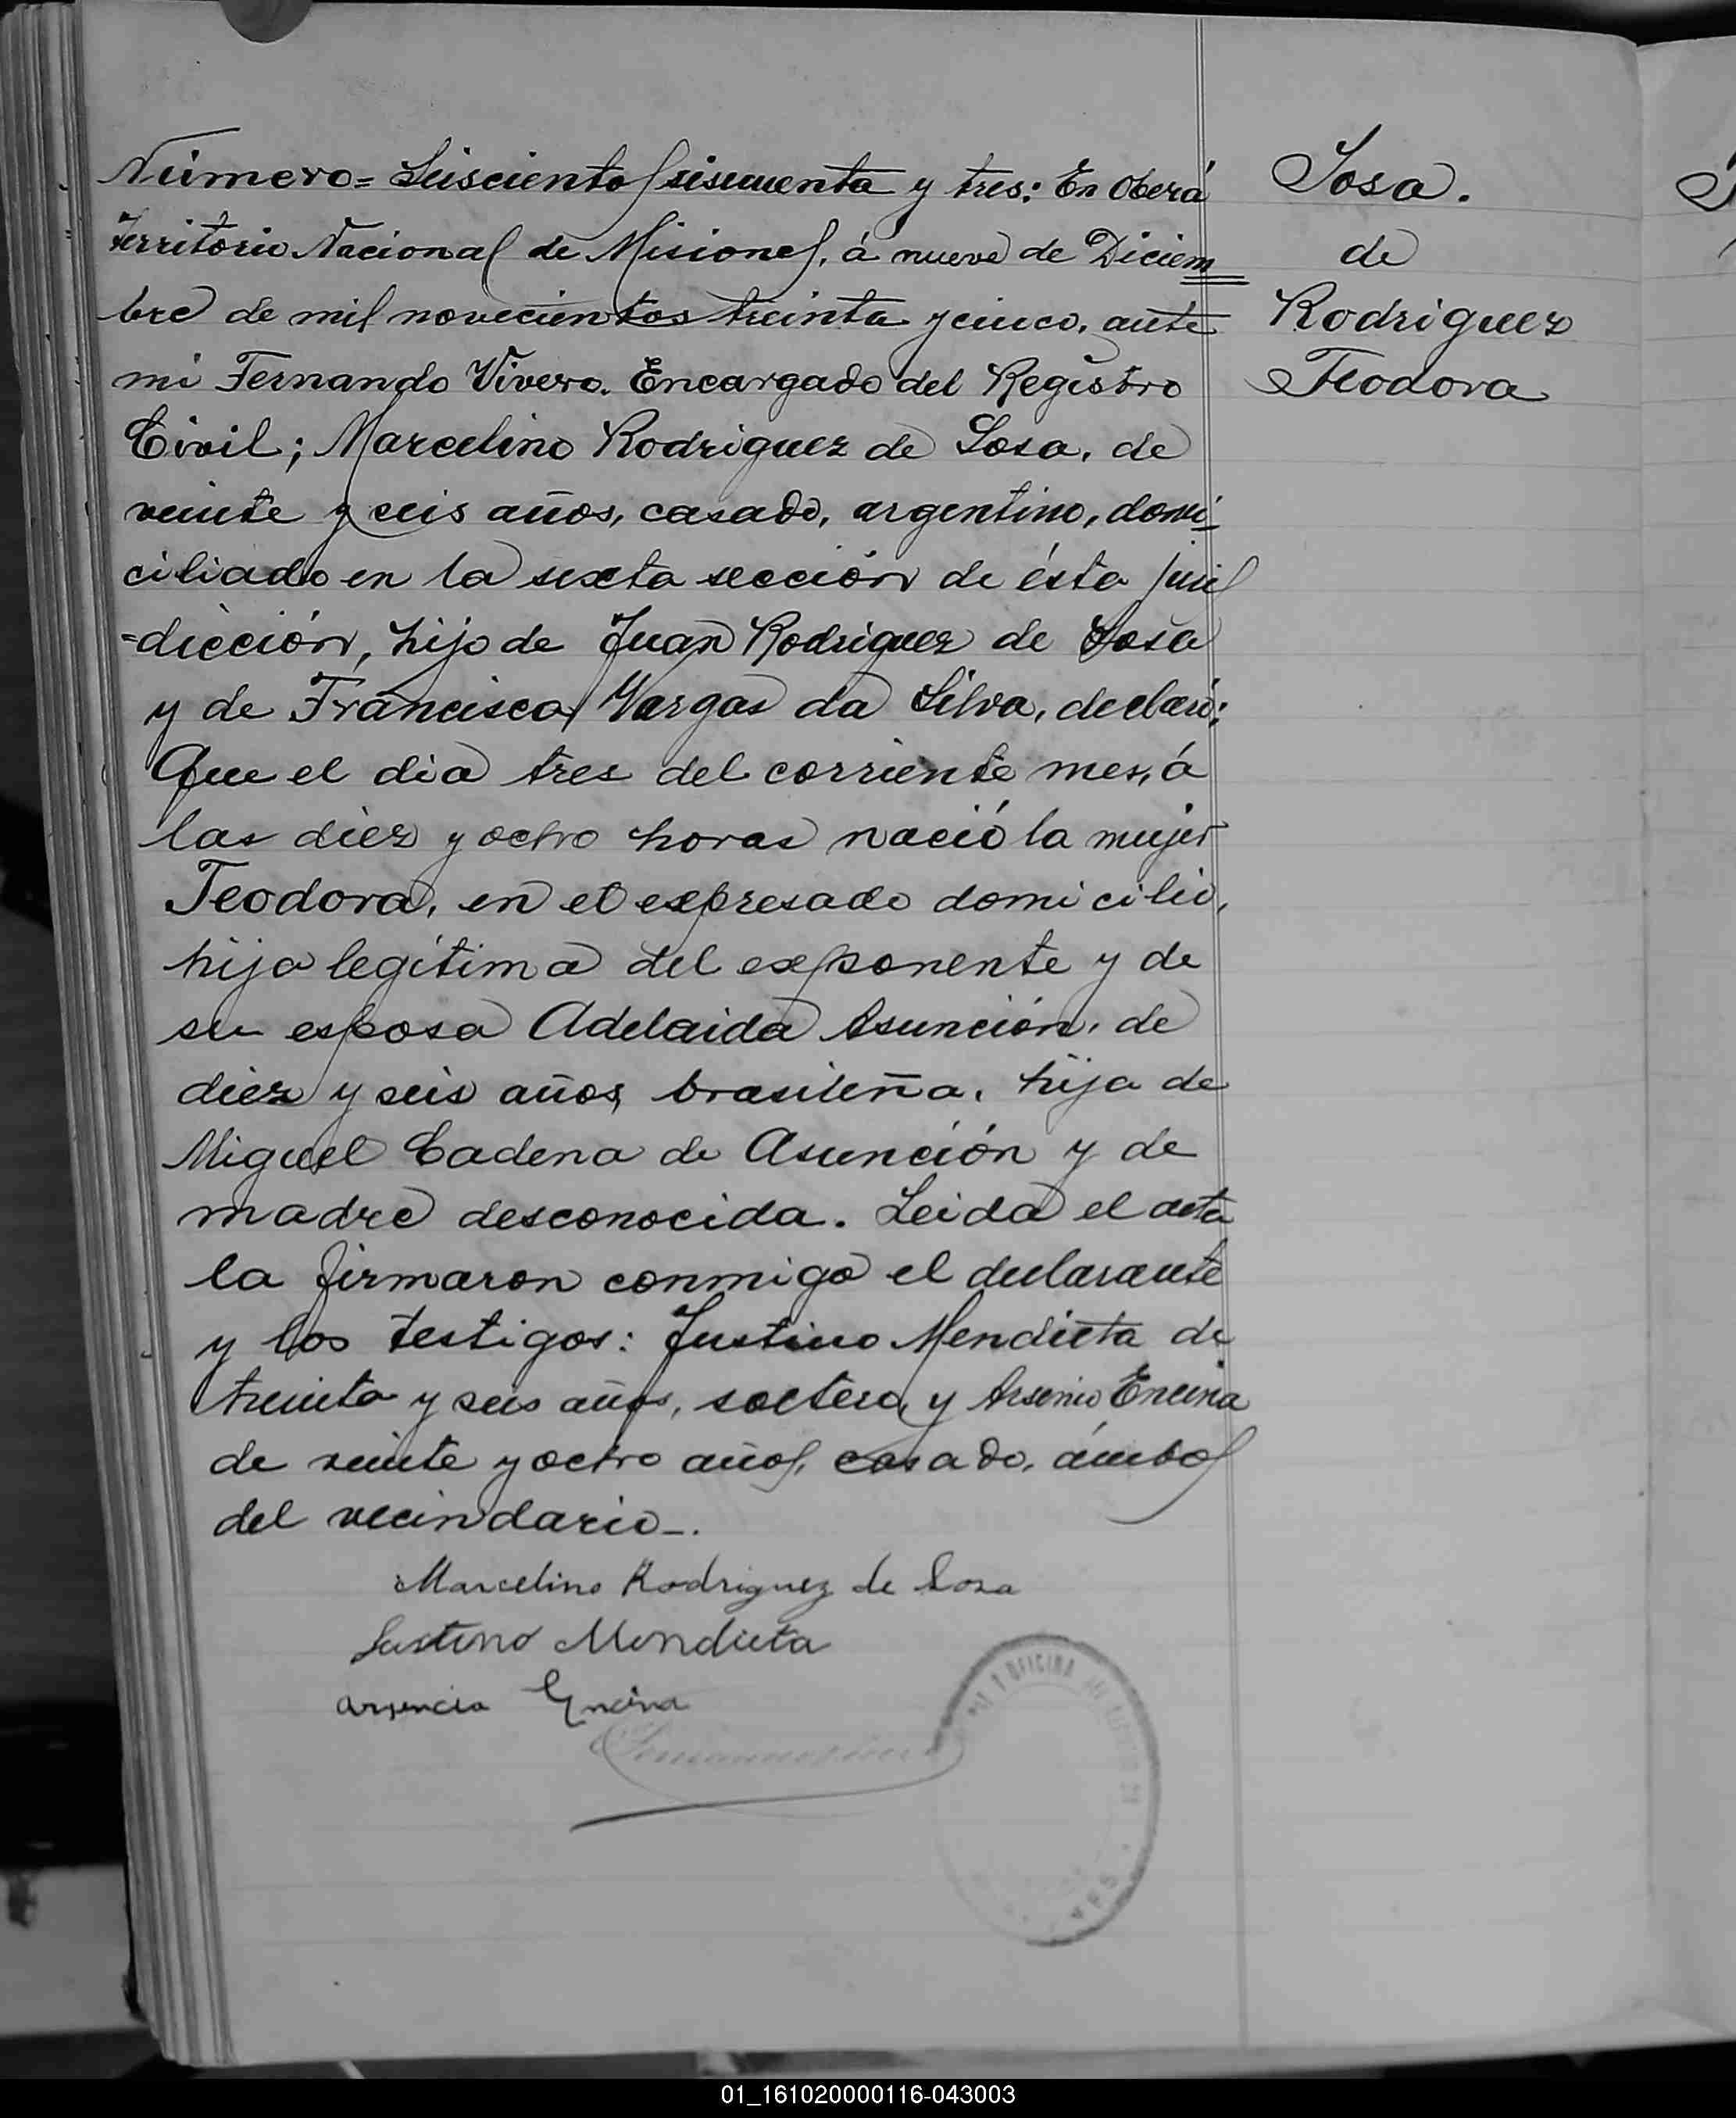 Número= Seiscientos sesenta y tres: En Oberá
Territorio Nacional de Misiones, á nueve de Diciem
bre de mil novecientos treinta y cinco, ante
mi Fernando Vivero. Encargado del Registro
Civil; Marcelino Rodriguez de Sosa, de
veinte y seis años, casado, argentino, domi
ciliado en la sexta sección de ésta juris
=dicción, hijo de Juan Rodriguez de Sosa
y de Francisca Vargas da Silva, declaró:
Que el dia tres del corriente mes, á
las diez y ocho horas nació la mujer
Teodora, en el expresado domicilio,
hija legítima del exponente y de
su esposa Adelaida Asunción, de
diez y seis años, brasileña, hija de
Miguel Cadena de Asunción y de
madre desconocida. Leida el acta
la firmaron conmigo el declarante
y los testigos: Justino Mendieta de
treinta y seis años, soltero, y Arsenio Encina
de veinte y ocho años, casado, ámbos
del vecindario_.
Marcelino Rodriguez de Sosa
Justino Mendieta
Arsencio Encina
OFICINA
Sosa.
de
Rodriguez
Teodora
01_161020000116-043003